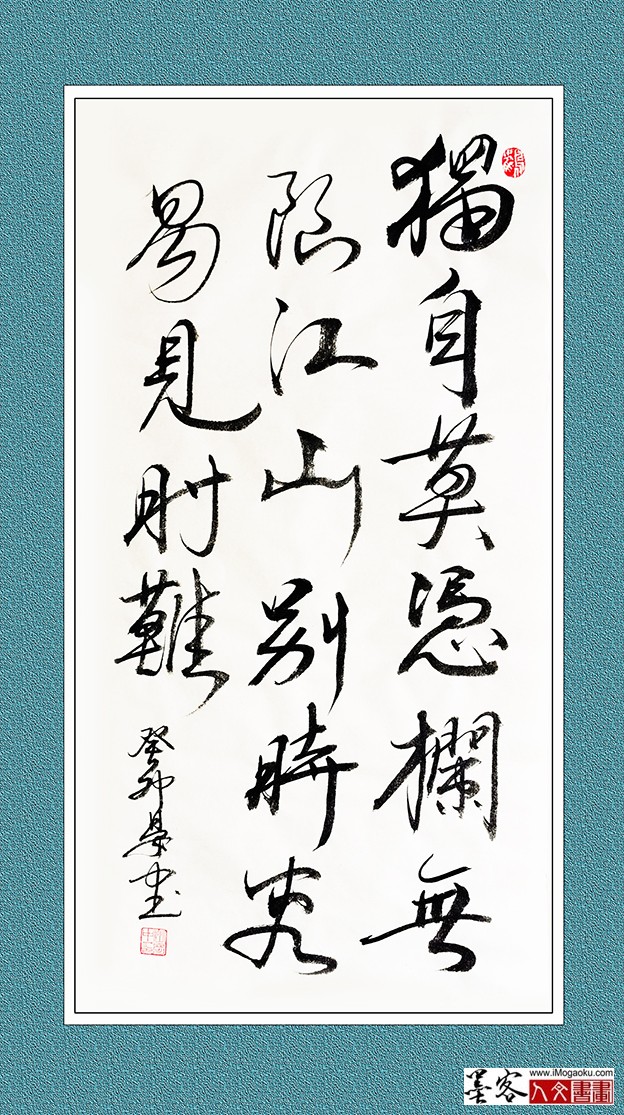 獨自莫憑欄無
限江山別時容
易見时難
癸卯
墨客
www.iMogaoku.com
人文書畫